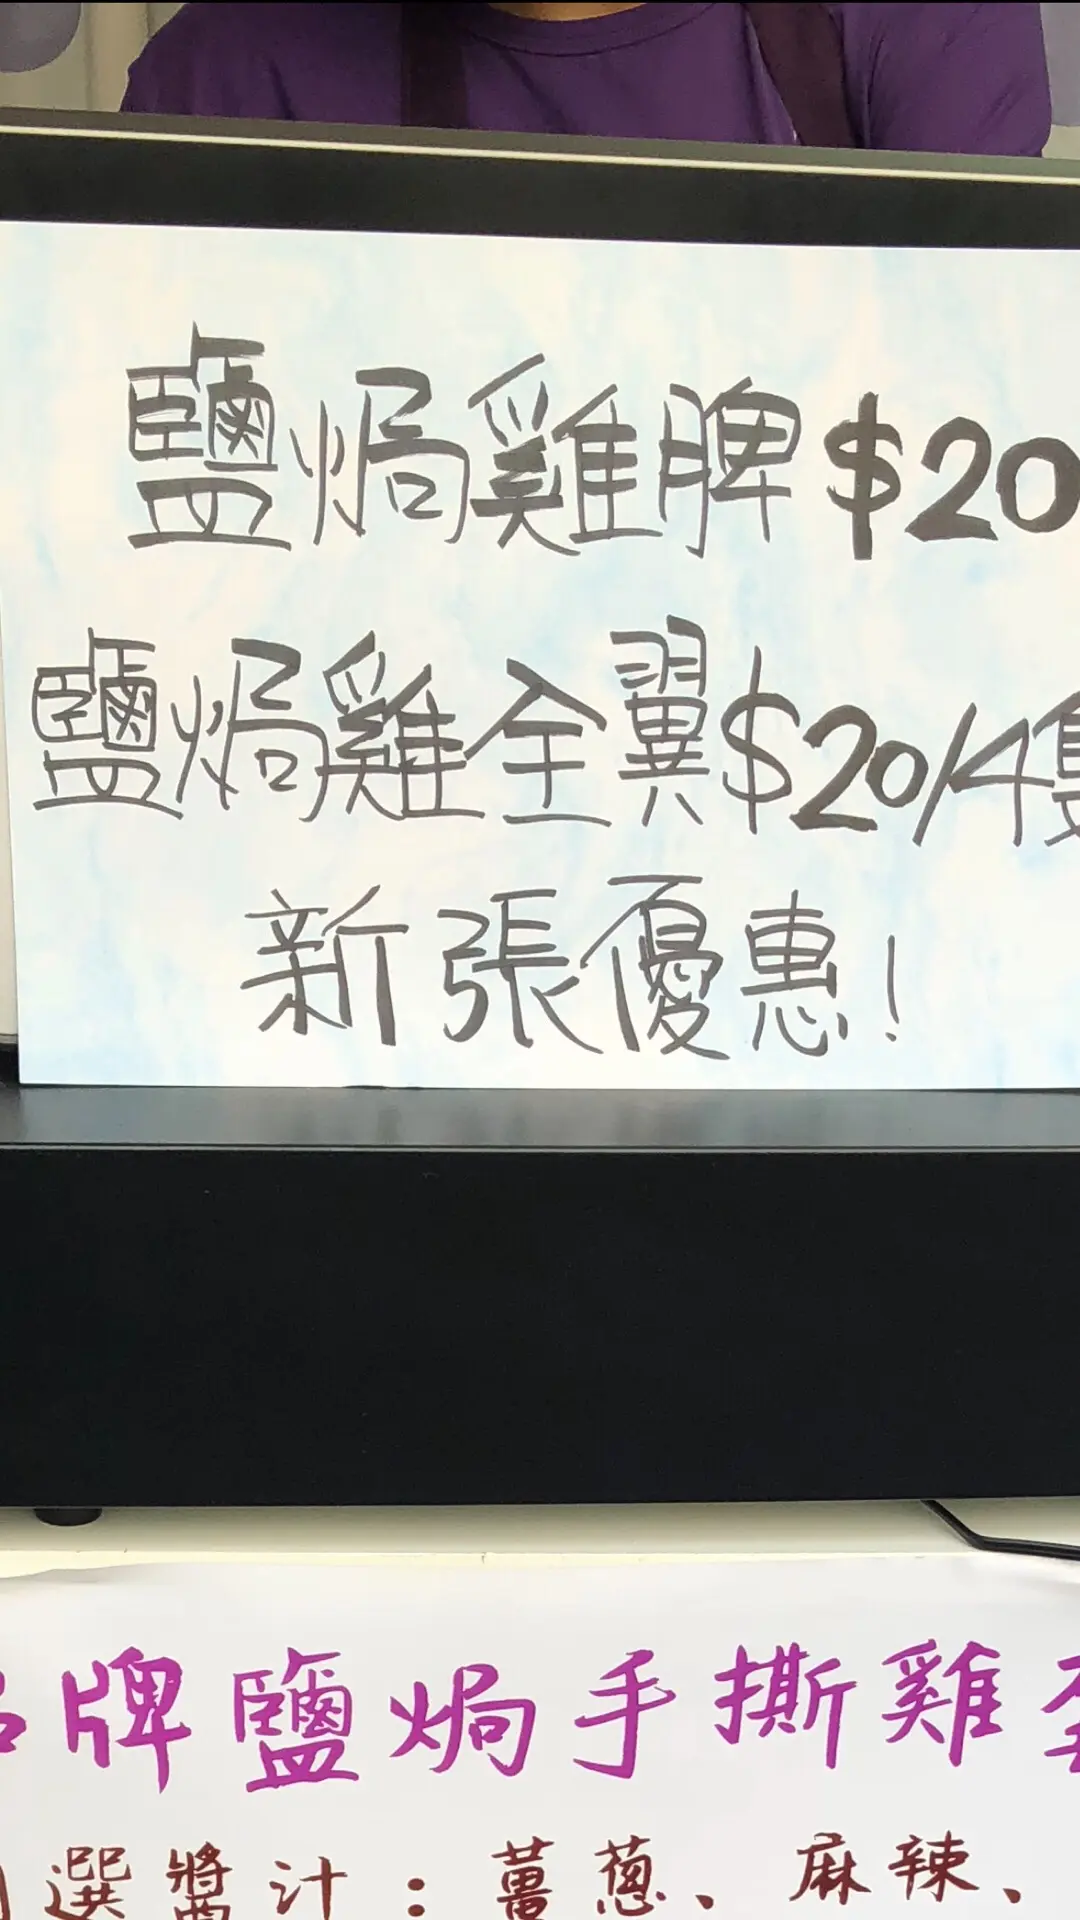 鹽焗雞髀$20
鹽焗雞全翼$20/4隻
新張優惠!
牌鹽焗手撕雞
選醬汁:薑蔥、麻辣、